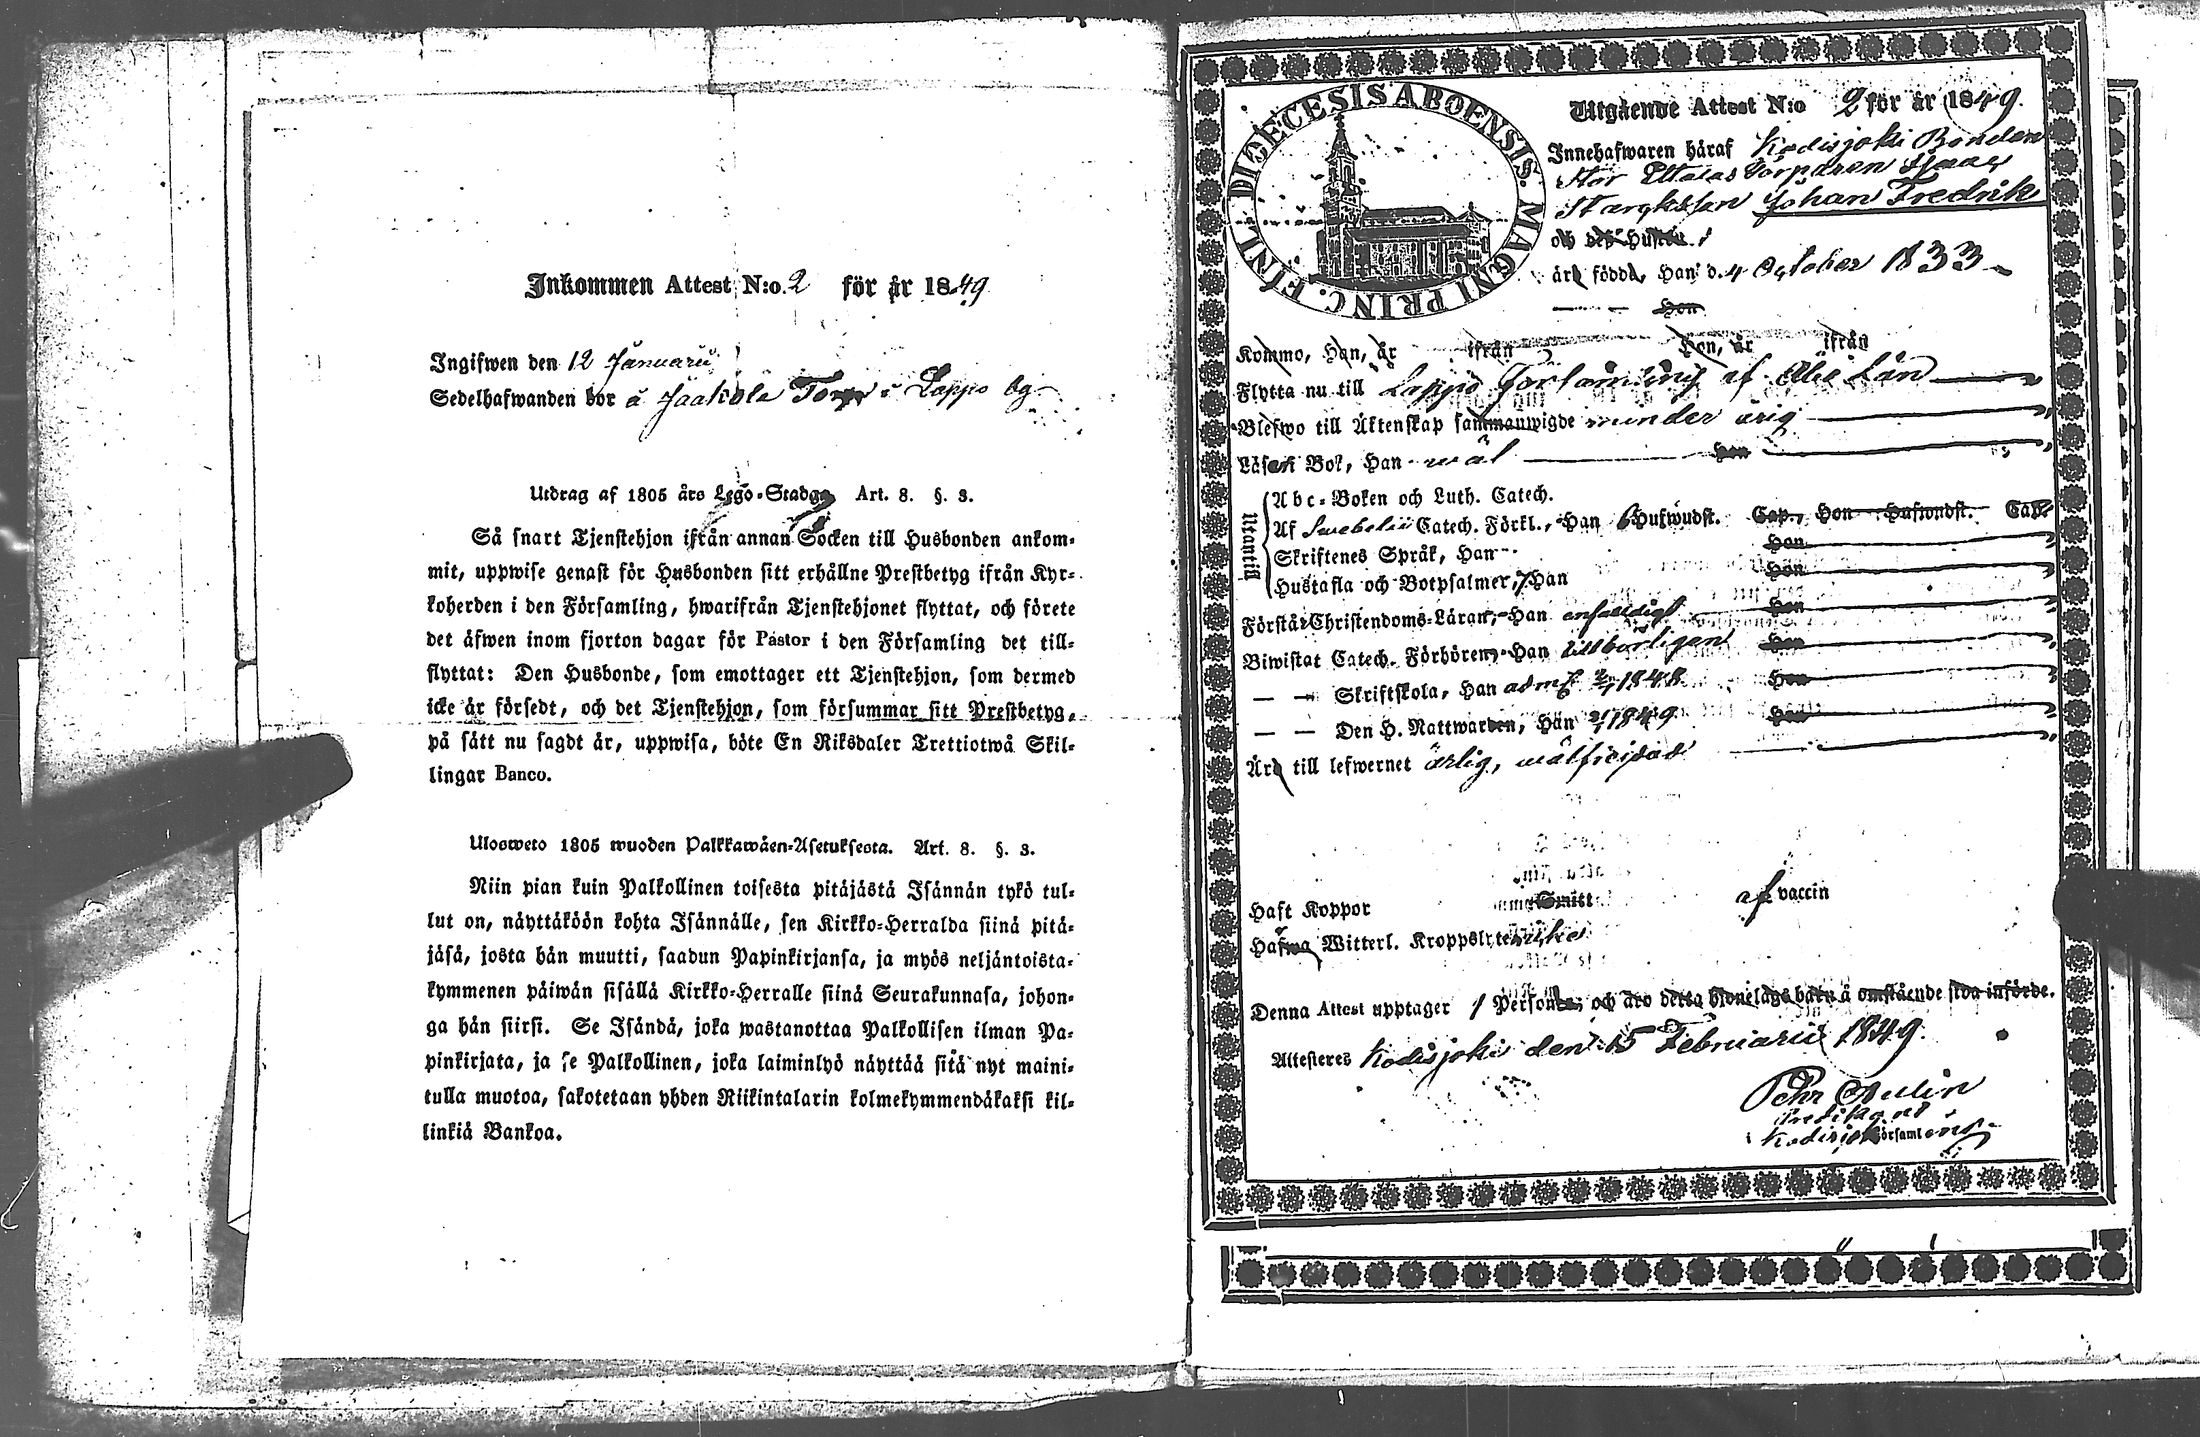 Inkommen Attest N:o 2 för år 1849
Ingifwen den 12 Januarii
Sedelhafwanden bor å Jaakola Torp i Lappo by
Utdrag af 1805 års Lego-Stadga Art. 8. §. 3.
Så snart Tjenstehjon ifrån annan Socken till Husbonden ankom-
mit, uppwise genast för Husbonden sitt erhållne Prestbetyg ifrån Kyr-
koherden i den Församling, hwarifrån Tjenstehjonet flyttat, och förete
det äfwen inom fjorton dagar för Pastor i den Församling det till-
flyttat: Den Husbonde, som emottager ett Tjenstehjon, som dermed
icke är försedt, och det Tjenstehjon, som försummar sitt Prestbetyg,
på sätt nu sagdt är, uppwisa, böte En Riksdaler Trettiotwå Skil-
lingar Banco.
Ulosweto 1805 wuoden Palkkawäen-Asetuksesta. Art. 8. §. 3.
Niin pian kuin Palkollinen toisesta pitäjästä Isännän tykö tul-
lut on, näyttäköön kohta Isännälle, sen Kirkko-Herralda siinä pitä-
jäsä, josta hän muutti, saadun Papinkirjansa, ja myös neljäntoista-
kymmenen päiwän sisällä Kirkko-Herralle siinä Seurakunnasa, johon-
ga hän siirsi. Se Isändä, joka wastanottaa Palkollisen ilman Pa-
pinkirjata, ja se Palkollinen, joka laiminlyö näyttää sitä nyt maini-
tulla muotoa, sakotetaan yhden Riikintalarin kolmekymmendäkaksi kil-
linkiä Bankoa.
DIOECESIS ABOENSIS. MAGNI PRINC. FINL.
Utgående Attest N:o 2 för år 1849.
Innehafwaren häraf Kodisjoki Bonden
Stor Torparen Isaac
Johan Fredrik
och des Hustru
äro födde, Han d. 4 October 1833
Hon
Kommo, Han, år ifrån Hon, år ifrån
Flytta nu till Lappo Församling af Åbo Län
Blefwo till Äktenskap sammanwigde under årig
Läsa i Bok, Han wäl Hon
Utantill
Abc-Boken och Luth. Catech.
Af Swebelii Catech. Förkl., Han 6 Hufwudst. Cap., Hon Hufwudst. Cap.
Skriftenes Språk, Han Hon
Hustafla och Botpsalmer, Han Hon
Förstå Christendoms-Läran, Han enfaldigt Hon
Biwistat Catech. Förhören, Han tillbörligen Hon
— — Skriftskola, Han adm. 1848 Hon
— — Den H. Nattwarden, Han 1849 Hon
Äro till lefwernet ärlig, wälfrejdad
Haft Koppor Smitt af vaccin
Hafwa Witterl. Kroppslyte icke
Denna Attest upptager 1 Personer, och äro detta hionelags barn å omstående sida införde.
Attesteres Kodisjoki den 15 Februarii 1849.
Pehr Aulin
Predikant
i Kodisjoki Församling